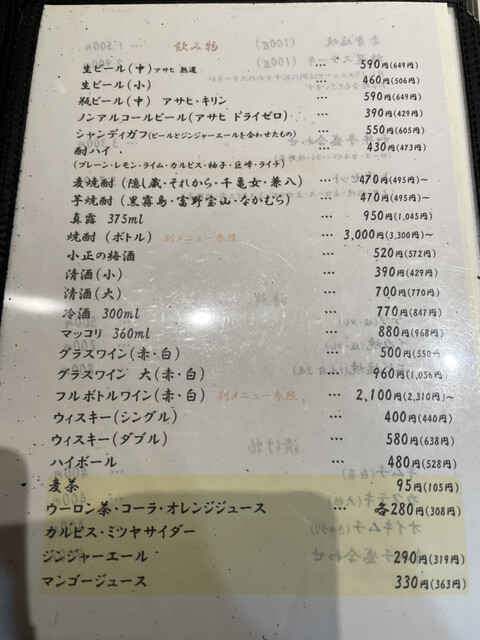 飲み物
生ビール(中) アサヒ 熟選 … 590円(649円)
生ビール(小) … 460円(506円)
瓶ビール(中) アサヒ・キリン … 590円(649円)
ノンアルコールビール(アサヒ ドライゼロ) … 390円(429円)
シャンディガフ(ビールとジンジャーエールを合わせたもの) … 550円(605円)
酎ハイ … 430円(473円)
(プレーン・レモン・ライム・カルピス・柚子・巨峰・ライチ)
麦焼酎(隠し蔵・それから・千亀女・兼八) … 470円(495円)～
芋焼酎(黒霧島・富野宝山・なかむら) … 470円(495円)～
真露 375ml … 950円(1,045円)
焼酎(ボトル) 別メニュー参照 … 3,000円(3,300円)～
小正の梅酒 … 520円(572円)
清酒(小) … 390円(429円)
清酒(大) … 700円(770円)
冷酒 300ml … 770円(847円)
マッコリ 360ml … 880円(968円)
グラスワイン(赤・白) … 500円(550円)
グラスワイン 大(赤・白) … 960円(1,056円)
フルボトルワイン(赤・白) 別メニュー参照 … 2,100円(2,310円)～
ウィスキー(シングル) … 400円(440円)
ウィスキー(ダブル) … 580円(638円)
ハイボール … 480円(528円)
麦茶 95円(105円)
ウーロン茶・コーラ・オレンジジュース … 各280円(308円)
カルピス・ミツヤサイダー
ジンジャーエール 290円(319円)
マンゴージュース 330円(363円)